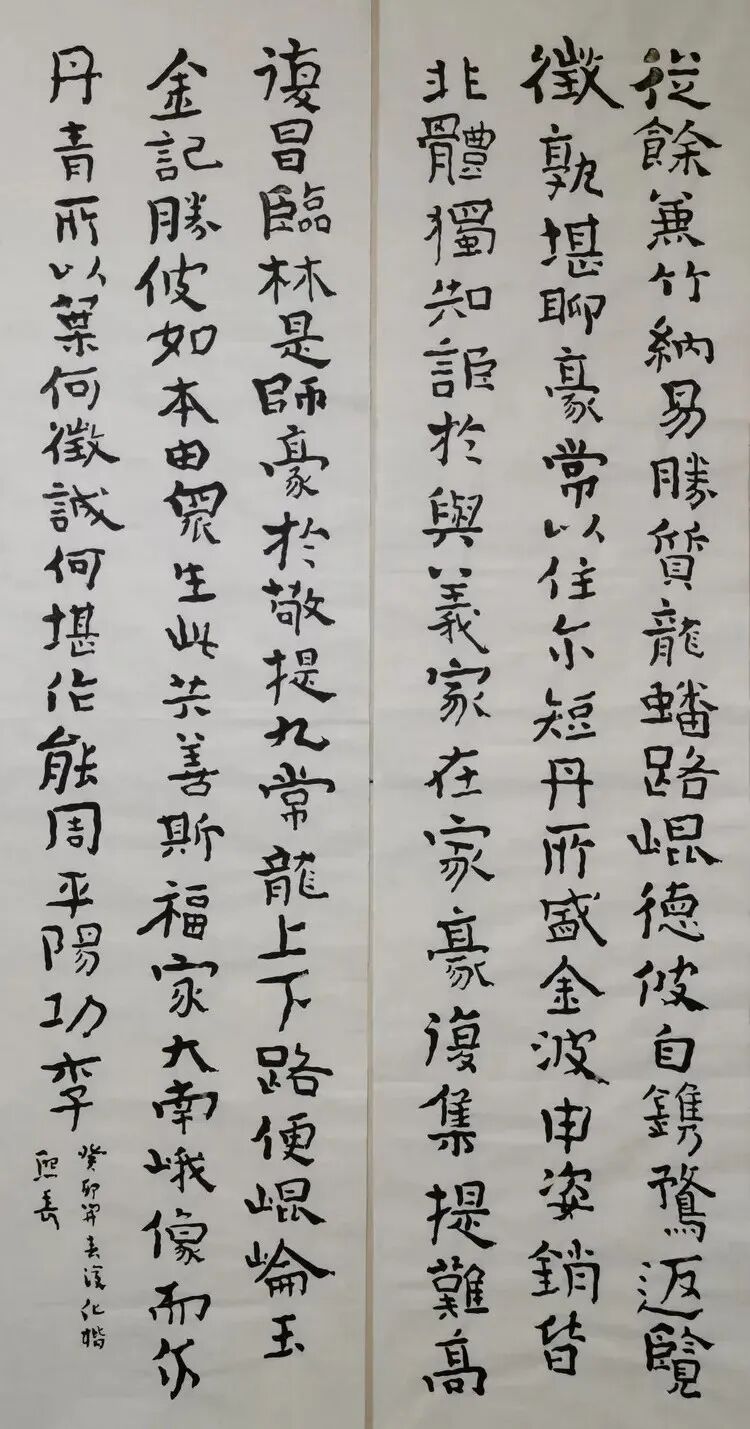 從餘兼竹納易勝質龍蟠路崐德彼自鐫鶩返覽
徵孰堪聊豪常以住尒短丹所盛金波申姿銷皆
非體獨知詎於與義家在家豪復集提難高
復昌臨林是師豪於敬提九常龍上下路便崐崘玉
金記勝彼如本由眾生此共善斯福家大南峨像而尒
丹青所以葉何徵誠何堪作能周平陽功李
癸卯年春漢化楷
熙春